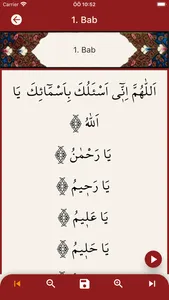 Carrier ÖÖ 10:52
1. Bab
1. Bab
اَللّٰهُمَّ اِنّٖٓى اَسْئَلُكَ بِاَسْمَٓائِكَ يَا
اَللّٰهُ
يَا رَحْمٰنُ
يَا رَحٖيمُ
يَا عَلٖيمُ
يَا حَلٖيمُ